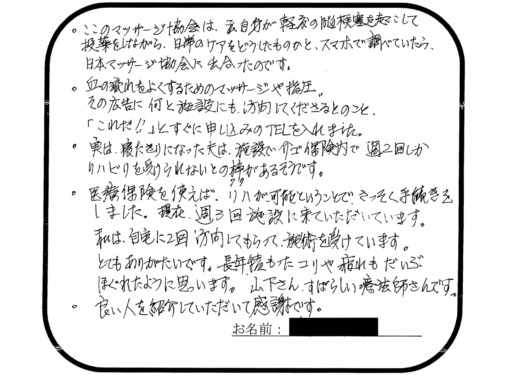 ・このマッサージ協会は、私自身が軽度の脳梗塞を起こして
投薬をしながら、日常のケアをどうしたものかと、スマホで調べていたら、
日本マッサージ協会に出会ったのです。
・血の流れをよくするためのマッサージや指圧。
その広告に何と施設にも訪問してくださるとのこと、
「これだ!!」とすぐに申し込みのTELを入れました。
・実は、寝たきりになった夫は、施設で介ゴ保険内で週2回しか
リハビリを受けられないとの枠があるそうです。
ワク
・医療保険を使えば、リハが可能ということで、さっそく手続きを
しました。現在、週3回施設に来ていただいています。
私は、自宅に2回訪問してもらって、施術を受けています。
とてもありがたいです。長年積もったコリや疲れもだいぶ
ほぐれたように思います。山下さん、すばらしい療法師さんです。
・良い人を紹介していただいて感謝です。
お名前：